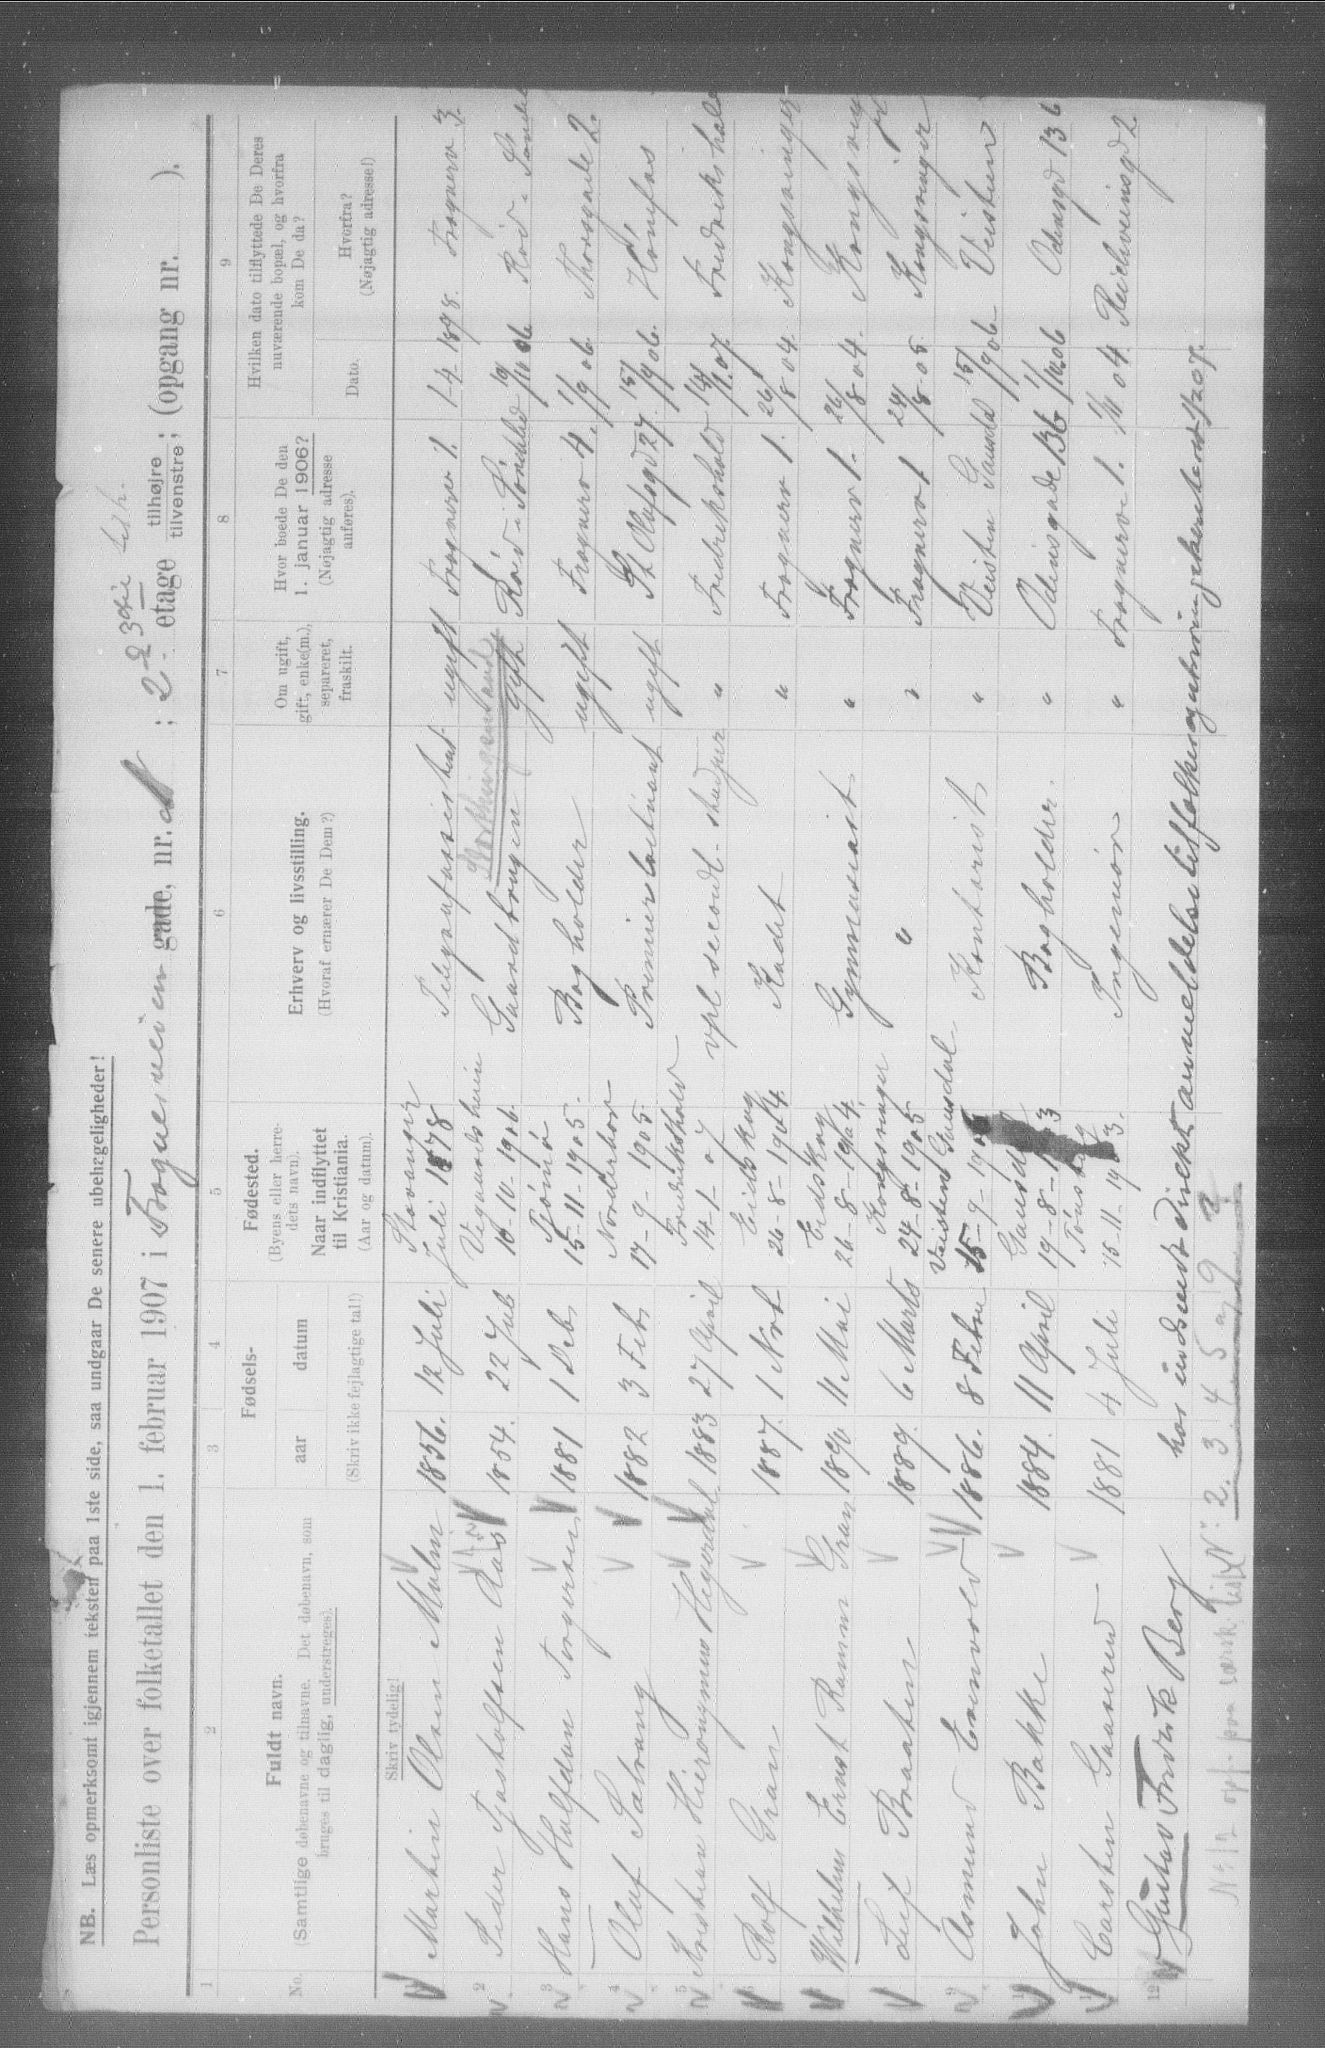 NB. Læs opmerksomt igjennem teksten paa 1ste side, saa undgaar De senere ubehageligheder!
3die tilh.
Personliste over folketallet den 1. februar 1907 i Frognerveien gade, nr. 1 ; 2 etage tilhøjre tilvenstre; (opgang nr. ).
1 2 3 4 5 6 7 8 9
No.
Fuldt navn.
(Samtlige døbenavne og tilnavne. Det døbenavn, som bruges til daglig, understreges).
Fødsels-
aar datum
(Skriv ikke fejlagtige tal!)
Fødested.
(Byens eller herredets navn).
Naar indflyttet til Kristiania.
(Aar og datum).
Erhverv og livsstilling.
(Hvoraf ernærer De Dem?)
Om ugift, gift, enke(m.), separeret, fraskilt.
Hvor boede De den 1. januar 1906?
(Nøjagtig adresse anføres).
Hvilken dato tilflyttede De Deres nuværende bopæl, og hvorfra kom De da?
Dato.
Hvorfra?
(Nøjagtig adresse!)
Skriv tydelig!
1 Martin Olsen Malm 1856. 12 Juli Stavanger Juli 1878 Telegrafassistent ugift Frognerv 1. 1-4-1898. Frognerv 3.
Storthingsmand
2 Peder Tjostolfsen Aas 1854. 22 Juli Vegaardsheien 10-10-1906. Gaardbruger gift
3 Hans Halfdan Torgersen 1881 1 Deb Tjömö 15-11-1905. Bogholder ugift Frognerv 4. 1/9 06. Thorsgade 2.
4 Oluf Sätrang 1882 3 Feb Norderhov 17-9-1905. Premierløitnant ugift St Olafsgd 27. 15/9 06. Hönefos
5 Andreas Hieronymus Hejerdahl 1883 27 April Fredrikshald 14-1-07 vpl secondl. studjur " Fredrikshald 14/1.07. Fredrikshald
6 Rolf Gran 1887. 1 Novb Eidskog 26-8-1904 Kadet " Frognerv 1. 26/8 04. Kongsvinger
7 Wilhelm Ernst Ramm Gran 1890 11 Mai Eidskog 26-8-1904. Gymnasiast " Frognerv 1. 26/8 04. Kongsvinger
8 Leif Braaten 1889. 6 Marts Kongsvinger 24-8-1905 " " Frognerv 1 24/8 05 Kongsvinger
9 Asmund Enevold 1886. 8 Febr Veisten Gausdal 15-9-1906 Kontorist " Veisten Gausdal 15/9 06. Veisten
10 John Bakke 1884. 11 April Gausdal 19-8-1903 Bogholder. " Odinsgade 13b 1/10 06 Odinsgd 13b
11 Carsten Gaarud 1881 4 Juli Tönsberg 15-11-1903. Ingeniör " Frognerv 1. 1/11 04. Reichweinsgd 2.
12 Gustav Fredrik Berg har indsendt direkte anmeldelse til folkeregistrering
No 12 opf. paa særsk. liste No 2. 3. 4. 5 og 9